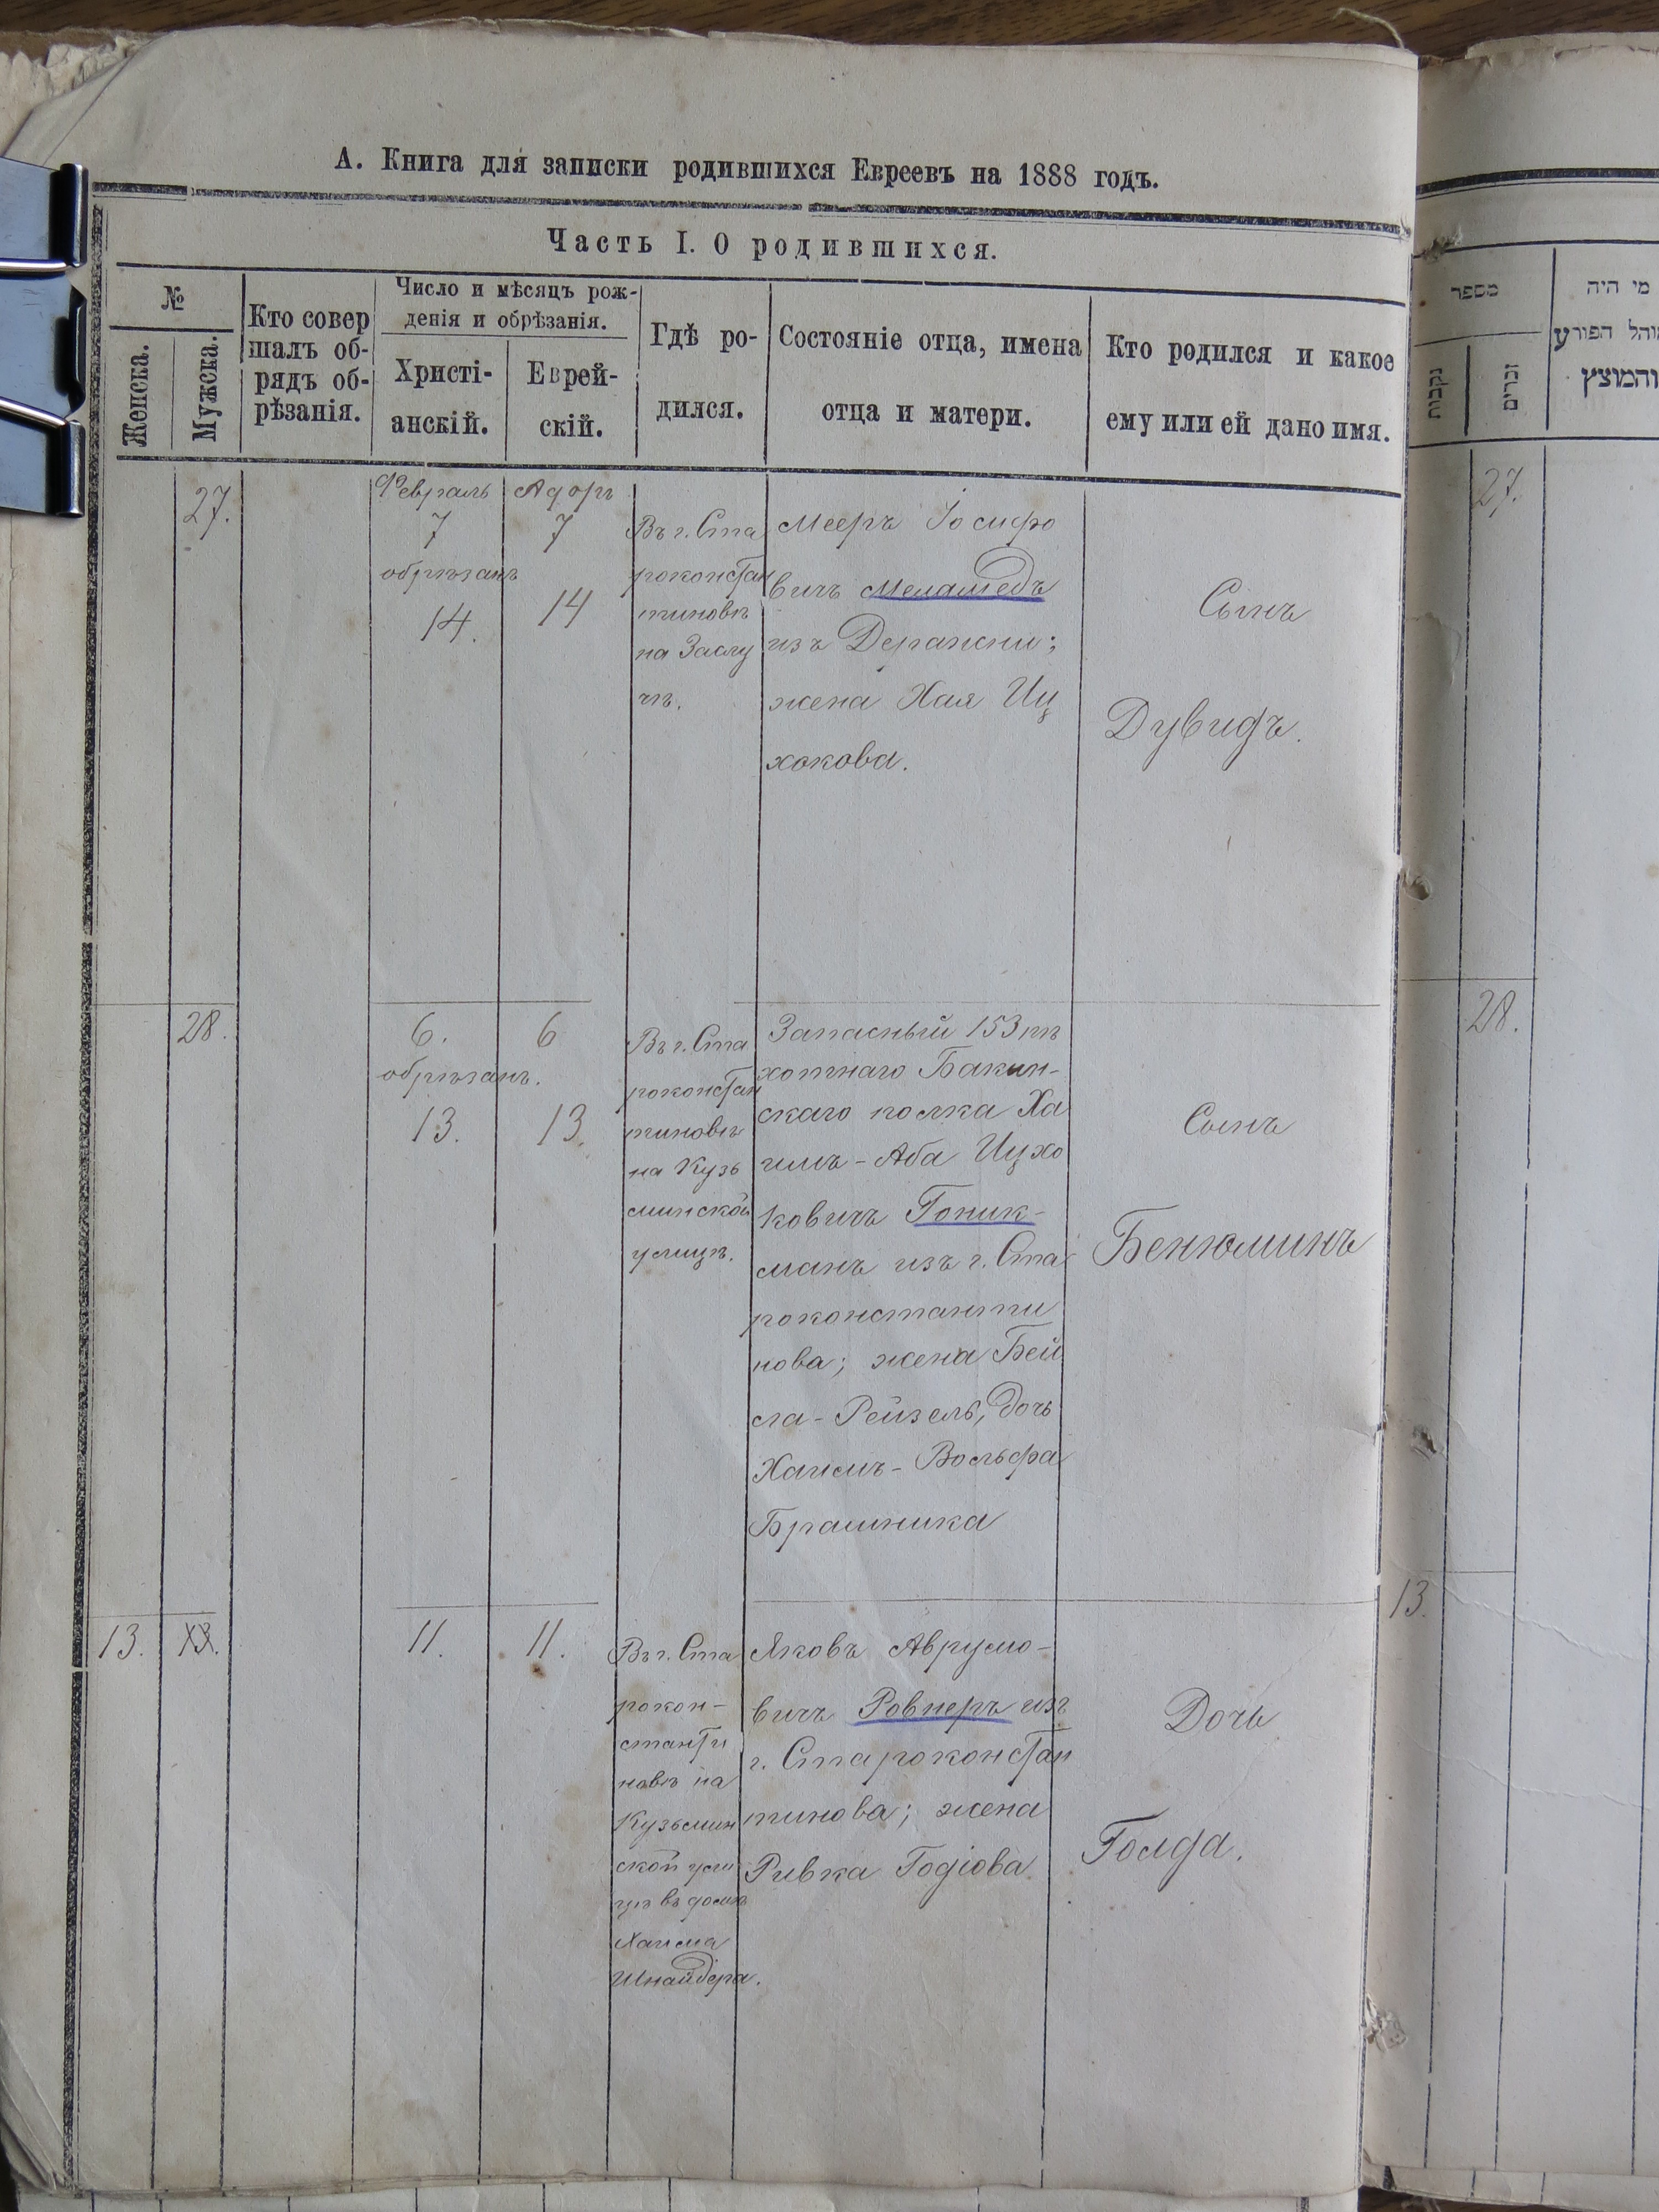 А. Книга для записки родившихся Евреевъ на 1888 годъ.
Часть I. О родившихся.
№
Женска.
Мужска.
Кто совер
шалъ об-
рядъ об-
рѣзанія.
Число и мѣсяцъ рож-
денія и обрѣзанія.
Христі-
анскій.
Еврей-
скій.
Гдѣ ро-
дился.
Состояніе отца, имена
отца и матери.
Кто родился и какое
ему или ей дано имя.
מספר
נקבות
זכרים
מי היה
מוהל הפורע
והמוצץ
27.
Февраль
7
обрѣзанъ
14.
Адоръ
7
14
Въ г. Ста
роконстан
тиновѣ
на Заслу
чѣ.
Мееръ Іосифо
вичъ Меламедъ
изъ Деражни;
жена Хая Иц
хокова.
Сынъ
Дувидъ.
27.
28.
6.
обрѣзанъ.
13.
6
13.
Въ г. Ста
роконстан
тиновѣ
на Кузь
минской
улицѣ.
Запасный 153 пѣ
хотнаго Бакин-
скаго полка Ха
имъ-Аба Ицхо
ковичъ Гоник-
манъ изъ г. Ста
роконстанти
нова; жена Бей
ла-Рейзель, дочь
Хаимъ-Вольфа
Брашника
Сынъ
Бенюминъ
28.
13.
11.
11.
Въ г. Ста
рокон-
станти
новѣ на
Кузьмин
ской ули
цѣ въ домѣ
Хаима
Шнайдера.
Яковъ Аврумо-
вичъ Ровнеръ изъ
г. Староконстан
тинова; жена
Ривка Годіова.
Дочь
Голда.
13.